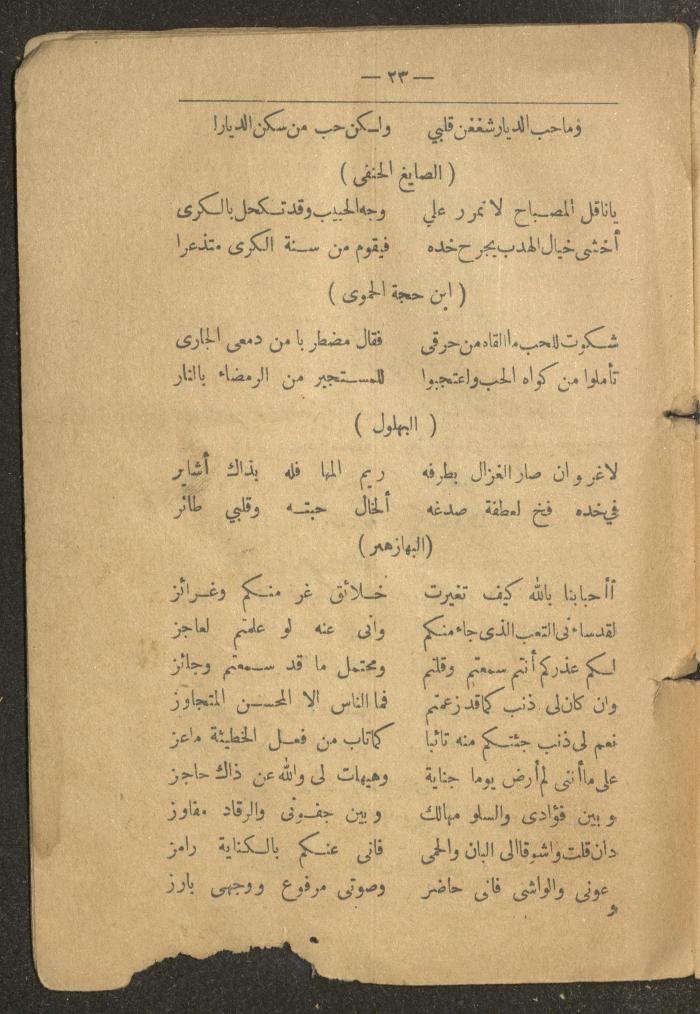 — ٢٣ —
وماحب الديارشغفن قلبي ولكن حب من سكن الديارا
( الصايغ الحنفى )
ياناقل المصباح لا تمرر علي وجه الحبيب وقد تكحل بالكرى
أخشى خيال الهدب يجرح خده فيقوم من سنة الكرى متذعرا
( ابن حجة الحموى )
شكوت للحب ما القاه من حرقى فقال مضطربا من دمعى الجارى
تأملوا من كواه الحب واعتجبوا للمستجير من الرمضاء بالنار
( البهلول )
لاغرو ان صار الغزال بطرفه ريم المها فله بذاك أشاير
فى خده فخ لعطفة صدغه ألخال حبته وقلبي طائر
(البهازهير )
أأحبابنا بالله كيف تغيرت خلائق غر منكم وغرائز
لقدساءنى التعب الذى جاءمنكم وانى عنه لو علمتم لعاجز
لكم عذركم أنتم سمعتم وقلتم ومحتمل ما قد سمعتم وجائز
وان كان لى ذنب كماقد زعمتم فما الناس الا المحسن المتجاوز
نعم لى ذنب جئتكم منه تائبا كماتاب من فعل الخطيئة ماعز
على ماأننى لم أرض يوما جناية وهيهات لى والله عن ذاك حاجز
وبين فؤادى والسلو مهالك وبين جفونى والرقاد مفاوز
دان قلت واشوقا الى البان والحمى فانى عنكم بالكناية رامز
وعونى والواشى فانى حاضر وصوتى مرفوع ووجهى بارز